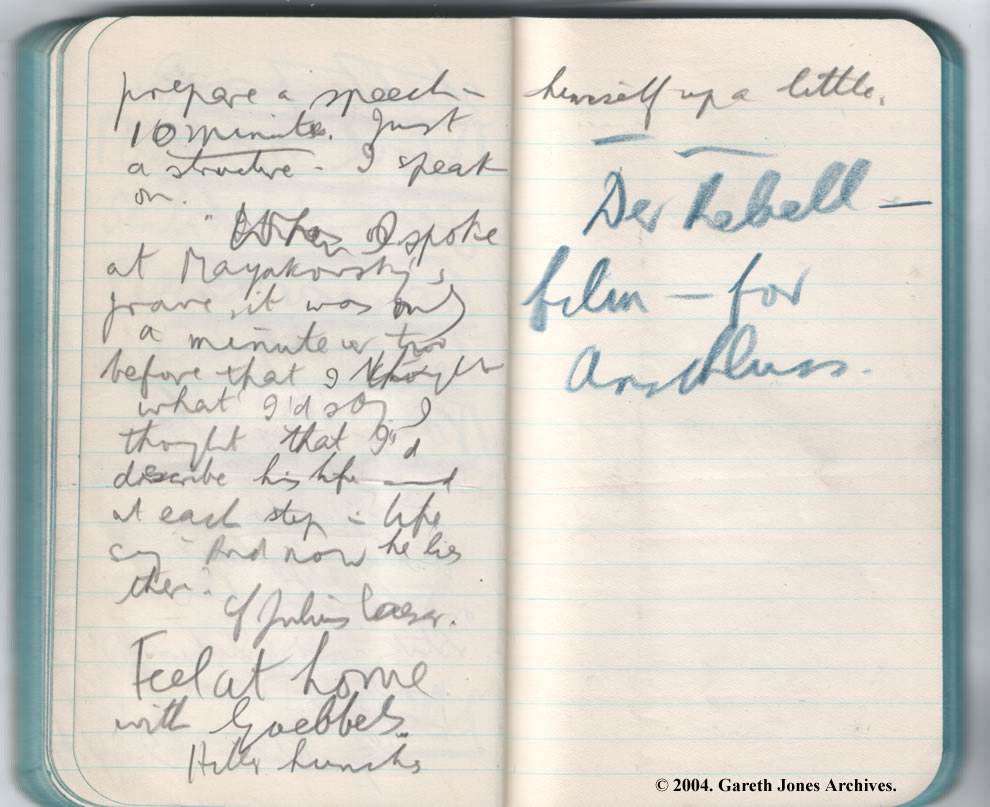 prepare a speech –
10 minutes. Just
a structure – I speak
on.
"When I spoke
at Mayakovsky's
grave, it was only
a minute or two
before that I thought
what I'd say. I
thought that I'd
describe his life and
at each step in life
say "And now he lies
there."
Cf Julius Caesar.
Feel at home
with Goebbels.
Hitler hunches
himself up a little.
Der Rebell –
film – for
Anschluss.
© 2004. Gareth Jones Archives.